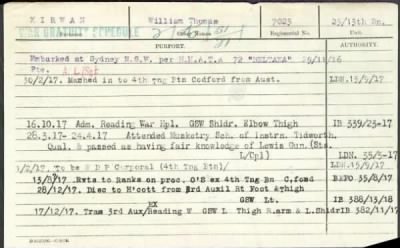 KIRWAN William Thomas 7023 25/13th Bn.
WAR GRATUITY SCHEDULE Other Names Regimental No.
PURPORT. AUTHORITY.
Embarked at Sydney N.S.W. per H.M.A.T.A 72 "BELTANA" 25/11/16
Pte. A L/Sgt
30/2/17. Marched in to 4th Tng Btn Codford from Aust. LDN.15/9/17
16.10.17 Adm. Reading War Hpl. GSW Shldr. Elbow Thigh IB 339/23-17
28.3.17- 24.4.17 Attended Musketry Sch. of Instrn. Tidworth.
Qual. & passed as having fair knowledge of Lewis Gun. (Sta.
L/Cpl) LDN. 35/5-17
/2/17. To be E D P Corporal (4th Tng Btn) LDN.15/9/17
13/8/17 Rvts to Ranks on proc. O'S ex 4th Tng Bn C,fomd BEPO 35/8/17
28/12/17. Disc to H'cott from 3rd Auxil Rt Foot & thigh
GSW Lt. IB 388/13/18
17/12/17. Trans 3rd Aux/ EX Reading W GSW L Thigh R.arm & L.Shldr IB 382/11/17